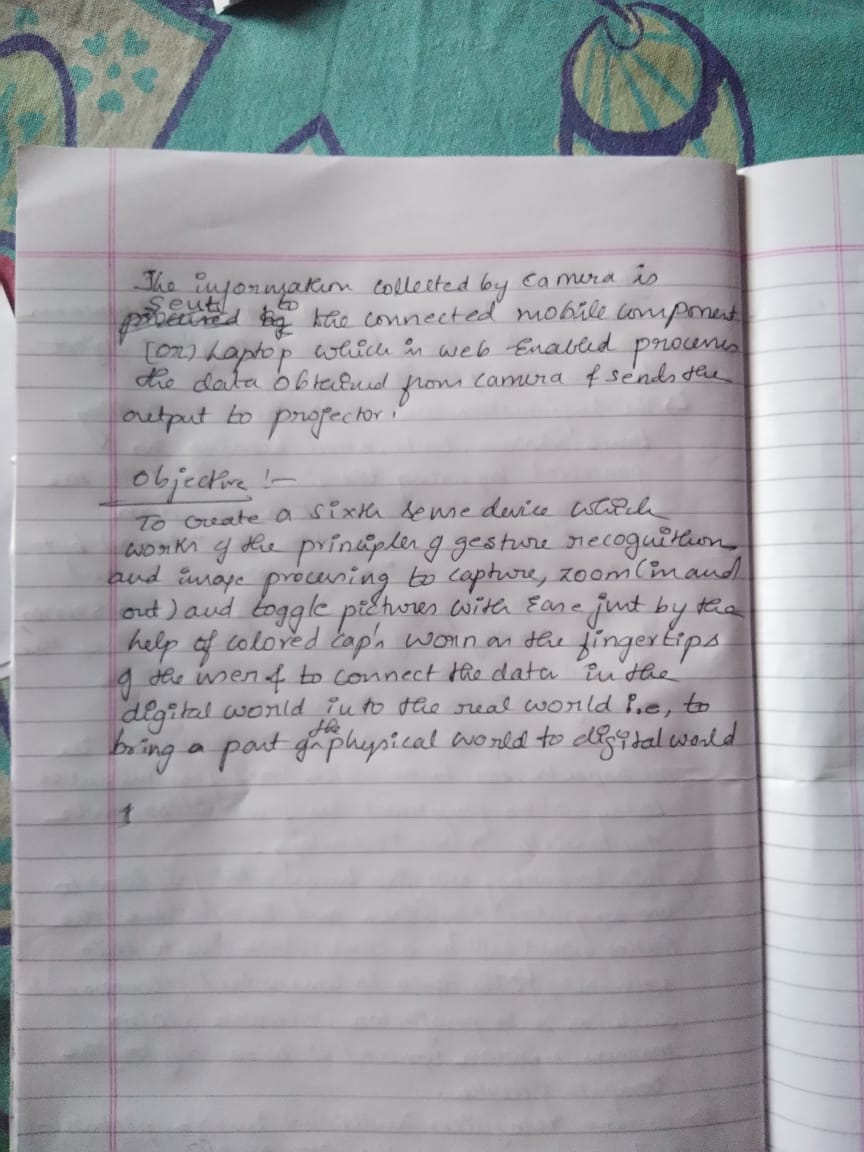 The information collected by camera is
sent to
processed by the connected mobile component
(or) Laptop which is web Enabled process
the data obtained from camera & sends the
output to projector.
Objective :-
To create a sixth sense device which
works of the principles of gesture recognition
and image processing to capture, zoom (in and
out) and toggle pictures with Ease just by the
help of colored cap's worn on the fingertips
of the user & to connect the data in the
digital world into the real world i.e, to
the
bring a part of physical world to digital world